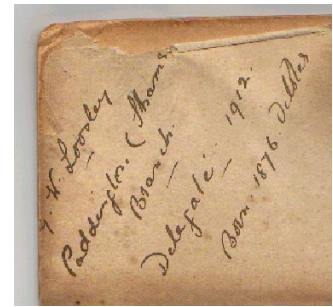 W. Loosley
Paddington (
Branch.
Delegate 1912.
Born 1876.